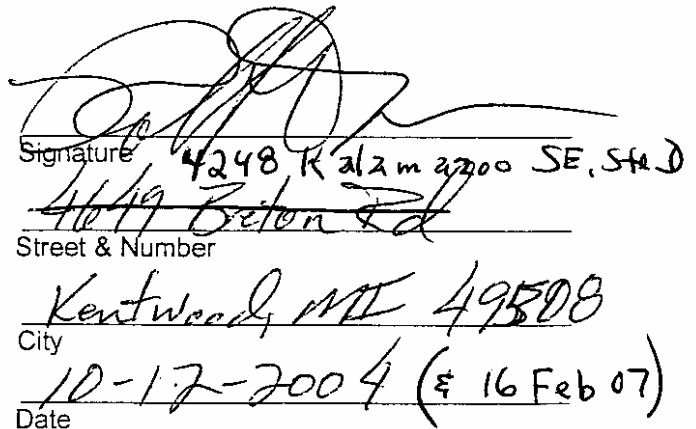 Signature
4248 Kalamazoo SE, Ste D
4649 Breton Rd
Street & Number
Kentwood, MI 49508
City
10-12-2004 (& 16 Feb 07)
Date